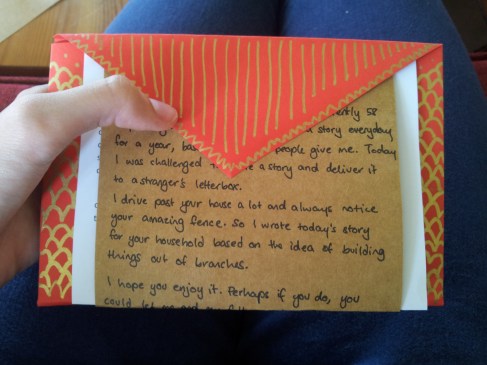 ently 58
a story everyday
for a year, ba people give me. Today
I was challenged a story and deliver it
to a stranger's letterbox.
I drive past your house a lot and always notice
your amazing fence. So I wrote today's story
for your household based on the idea of building
things out of branches.
I hope you enjoy it. Perhaps if you do, you
could let me